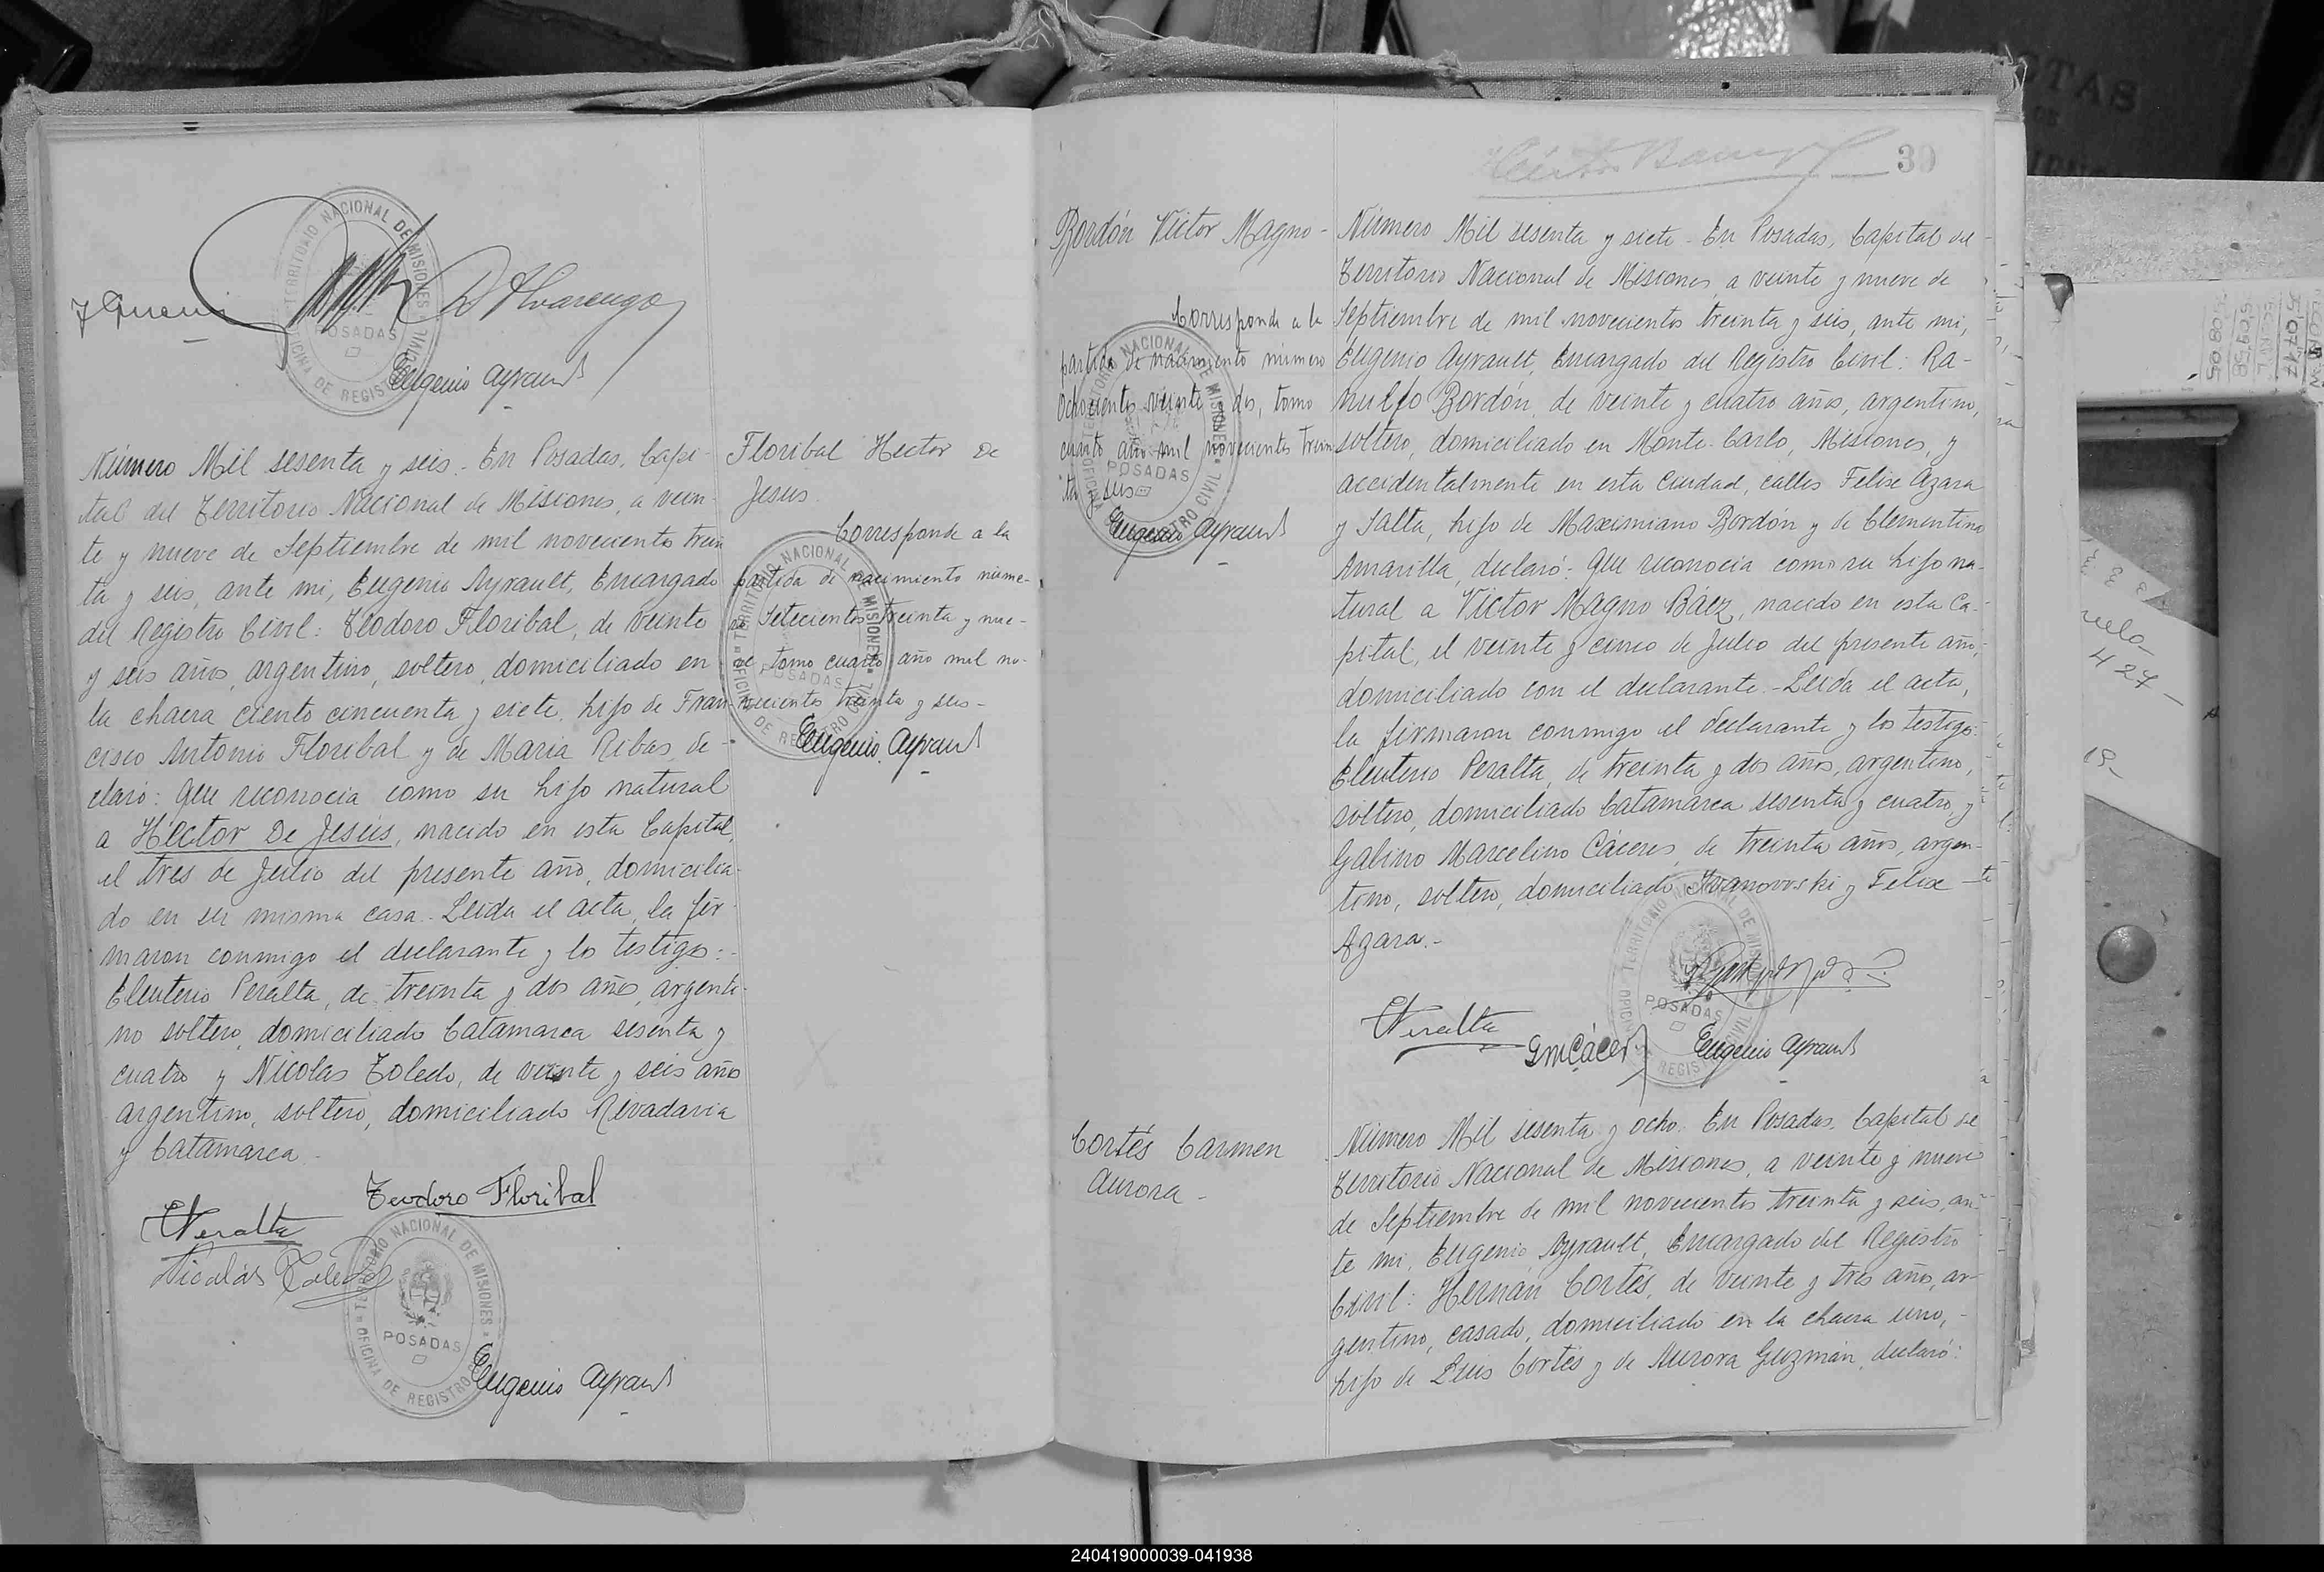 D Alvarenga
Eugenio Ayrault
TERRITORIO NACIONAL DE MISIONES
OFICINA DE REGISTRO CIVIL
POSADAS
Número Mil sesenta y seis. En Posadas, Capi-
tal del Territorio Nacional de Misiones, a vein-
te y nueve de Septiembre de mil novecientos trein
ta y seis, ante mi, Eugenio Ayrault, Encargado
del Registro Civil: Teodoro Floribal, de veinte
y seis años, argentino, soltero, domiciliado en
la chacra ciento cincuenta y siete, hijo de Fran-
cisco Antonio Floribal y de Maria Ribas, de-
claró: que reconocía como su hijo natural
a Héctor De Jesús, nacido en esta Capital,
el tres de Julio del presente año, domicilia-
do en su misma casa. Leida el acta, la fir-
maron conmigo el declarante y los testigos:-
Eleuterio Peralta, de treinta y dos años, argenti-
no soltero, domiciliado Catamarca sesenta y
cuatro y Nicolas Toledo, de veinte y seis años
argentino, soltero, domiciliado Rivadavia
y Catamarca.
Teodoro Floribal
EPeralta
Nicolás Toledo
TERRITORIO NACIONAL DE MISIONES
OFICINA DE REGISTRO
POSADAS
Eugenio Ayrault
Floribal Hector De
Jesus.
Corresponde a la
partida de nacimiento núme-
ro Setecientos treinta y nue-
ve tomo cuarto año mil no-
vecientos treinta y seis-
Eugenio Ayrault
39
Bordón Víctor Magno-
Corresponde a la
partida de nacimiento número
Ochocientos veinte y dos, tomo
cuarto año mil novecientos trein
ta y seis
Eugenio Ayrault
Número Mil sesenta y siete- En Posadas, Capital del
Territorio Nacional de Misiones, a veinte y nueve de
Septiembre de mil novecientos treinta y seis, ante mi,
Eugenio Ayrault, Encargado del Registro Civil: Ra-
nulfo Bordón, de veinte y cuatro años, argentino,
soltero, domiciliado en Monte-Carlo, Misiones, y
accidentalmente en esta Ciudad, calles Felix Azara
y Salta, hijo de Maximiano Bordón y de Clementina
Amarilla, declaró: que reconocía como su hijo na-
tural a Víctor Magno Báez, nacido en esta Ca-
pital, el veinte y cinco de Julio del presente año,
domiciliado con el declarante.-Leida el acta,
la firmaron conmigo el declarante y los testigos:
Eleuterio Peralta, de treinta y dos años, argentino,
soltero, domiciliado Catamarca sesenta y cuatro, y
Gabino Marcelino Cáceres, de treinta años, argen-
tino, soltero, domiciliado Ivanovoski y Felix
Azara.-
EPeralta
GmCácer
Eugenio Ayrault
Cortés Carmen
Aurora-
Número Mil sesenta y ocho. En Posadas, Capital de
Territorio Nacional de Misiones, a veinte y nueve
de Septiembre de mil novecientos treinta y seis, an-
te mi, Eugenio Ayrault, Encargado del Registro
Civil: Hernán Cortés, de veinte y tres años, ar-
gentino, casado, domiciliado en la chacra uno,-
hijo de Luis Cortés y de Aurora Guzmán, declaró:
240419000039-041938